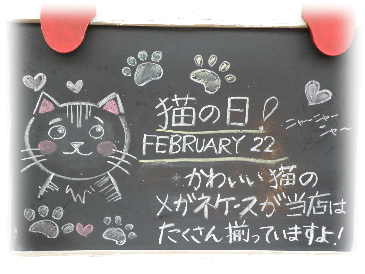 猫の日!
ニャーニャーニャ〜
FEBRUARY 22
かわいい猫の
メガネケースが当店は
たくさん揃っていますよ!